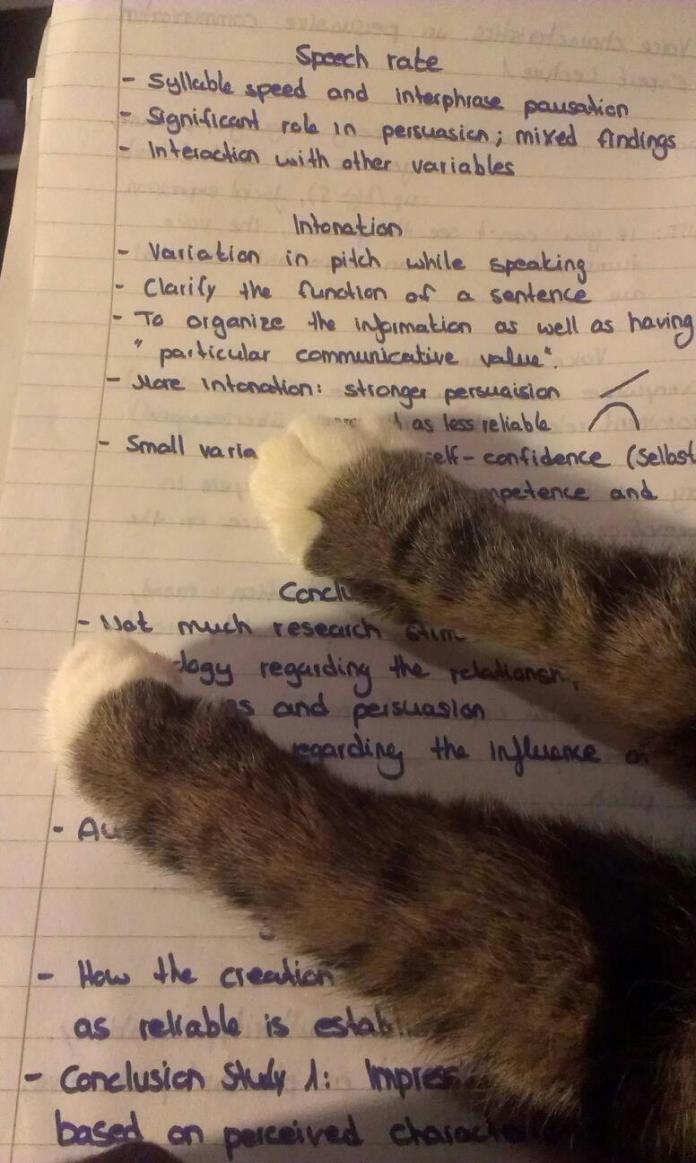 Speech rate
- Syllable speed and interphrase pausation
- Significant role in persuasion; mixed findings
- Interaction with other variables
Intonation
- Variation in pitch while speaking
- Clarify the function of a sentence
- To organize the information as well as having
" particular communicative value".
- More intonation: stronger persuaision
as less reliable
- Small varia self-confidence (Selbst
mpetence and
Conclu
- Not much research
logy regarding the relationsh
es and persuasion
regarding the influence
- Au
- How the creation
as reliable is establ
- Conclusion Study 1: Impress
based on perceived characte